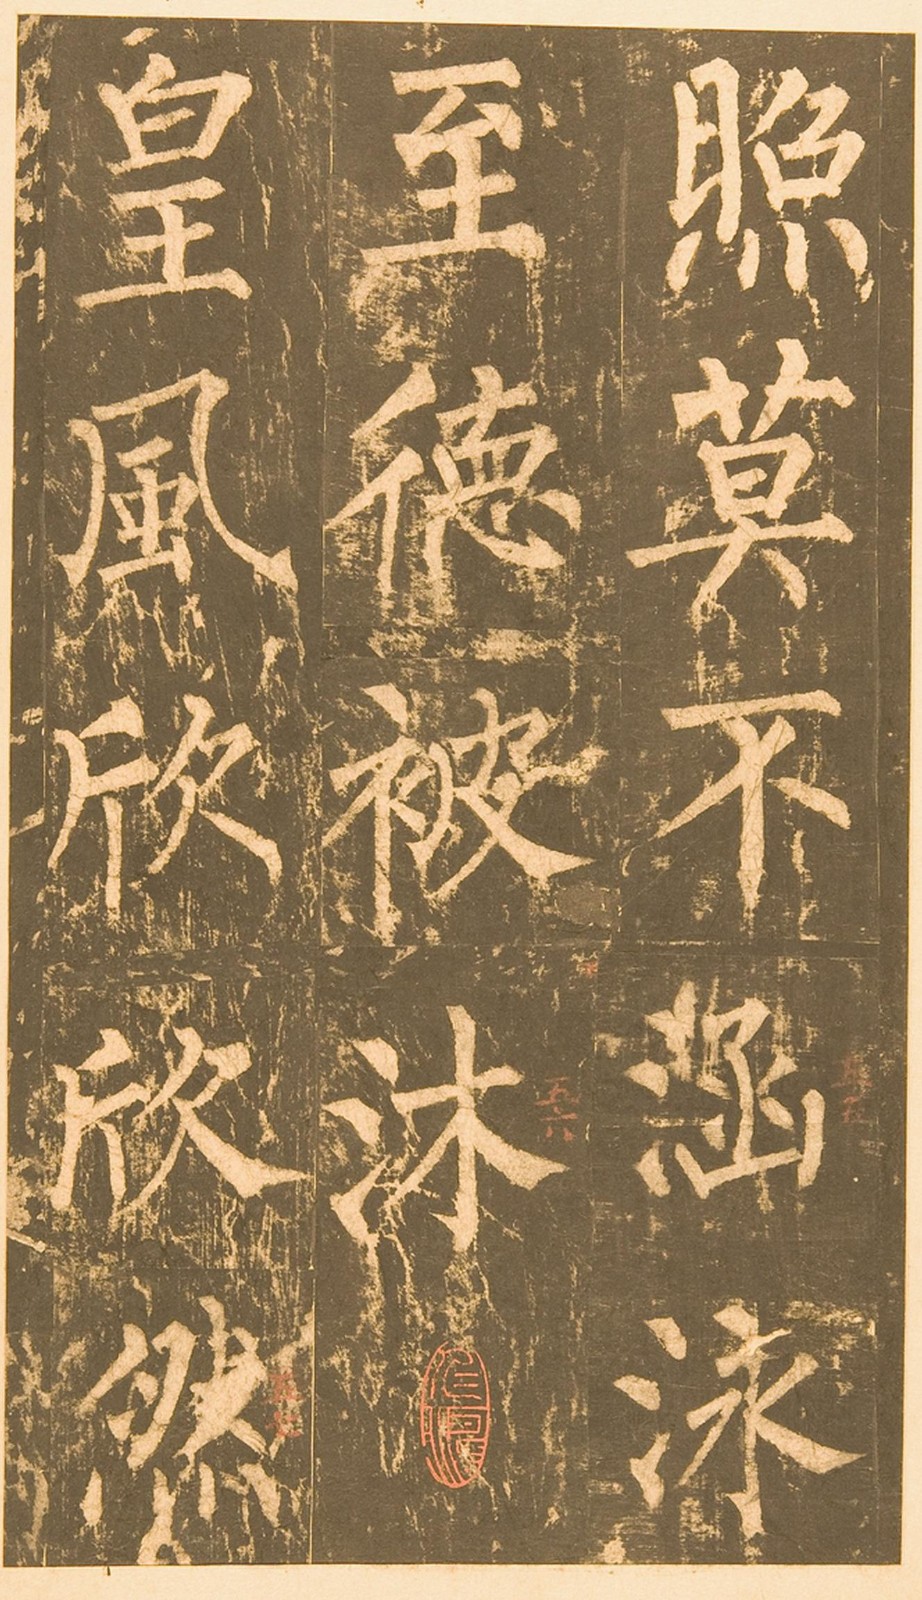 照莫不涵泳
至德被沐
皇風欣欣然
五六